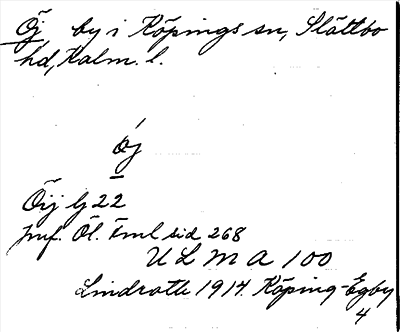 Öj by i Köpings sn, Slättbo
hd, Kalm. l.
ǿj
Öij lj 22
jmf. Öl. Fml sid 268
U L M A 100
Lindroth 1914. Köping-Egby
4